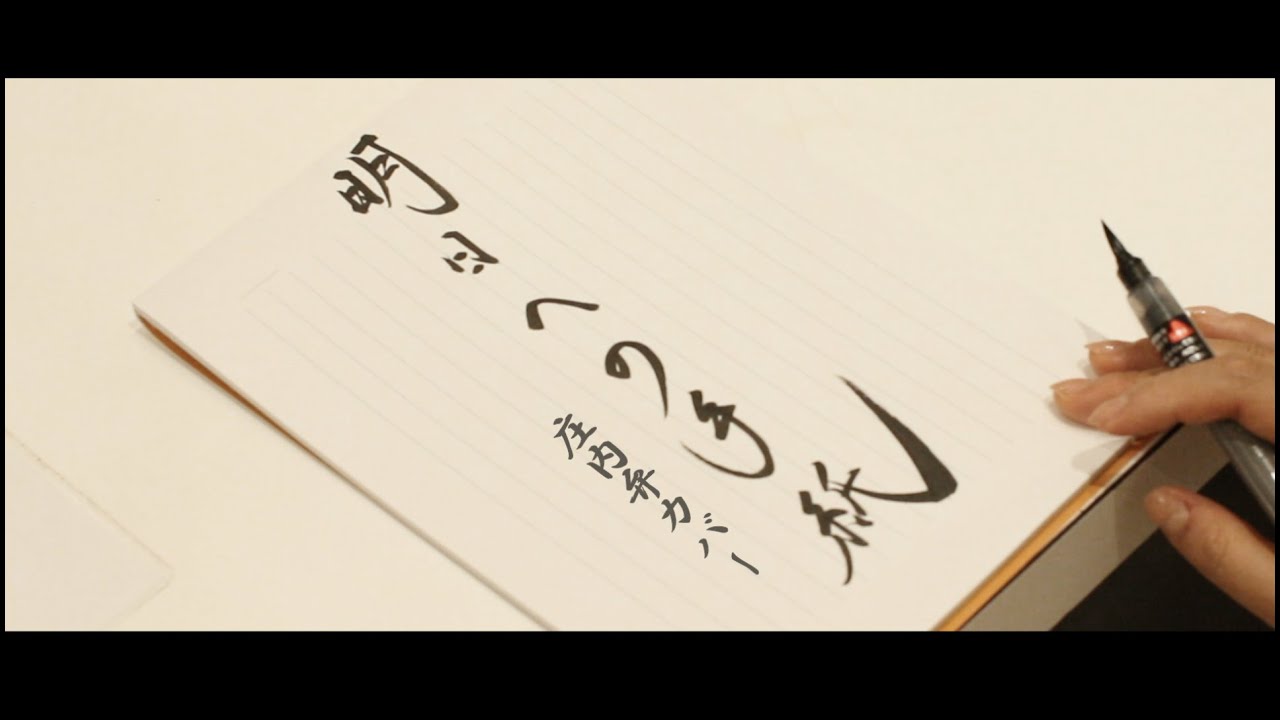 明日への手紙
庄内弁カバー